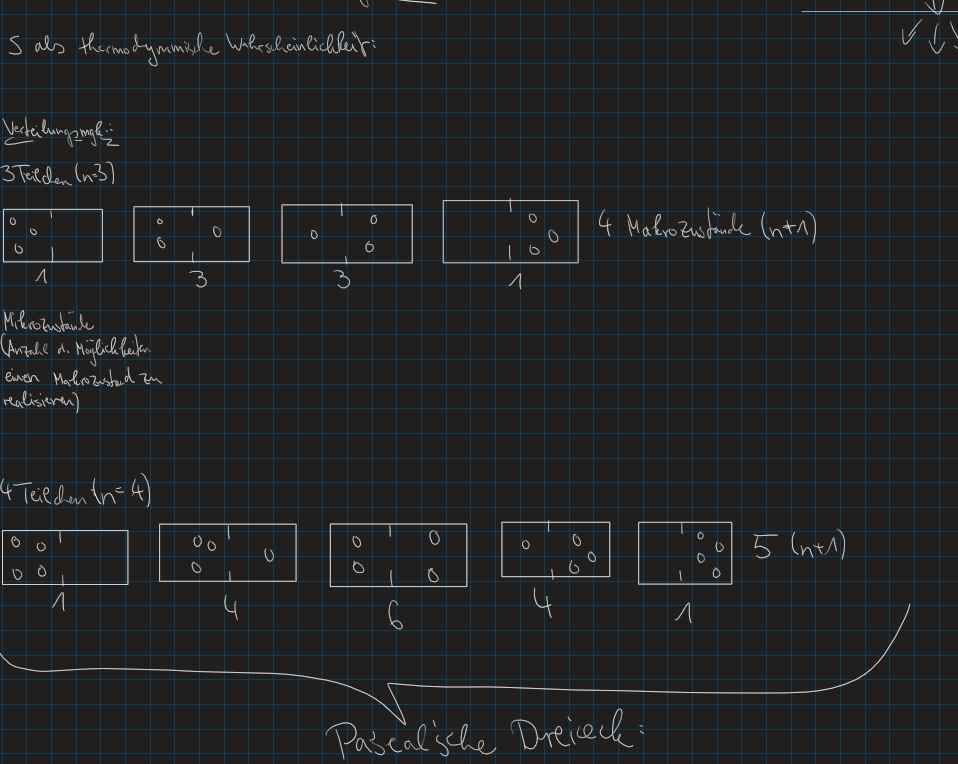 S als thermodynamische Wahrscheinlichkeit:
Verteilungsmgk.:
3 Teilchen (n=3)
4 Makrozustände (n+1)
1 3 3 1
Mikrozustände
(Anzahl d. Möglichkeiten
einen Makrozustand zu
realisieren)
4 Teilchen (n=4)
5 (n+1)
1 4 6 4 1
Pascal'sche Dreieck: